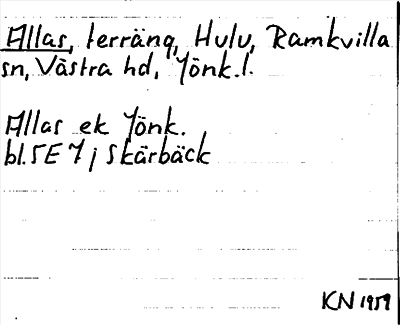 Allas, terräng, Hulu, Ramkvilla
sn, Västra hd, Jönk. l.
Allas ek Jönk.
bl. 5E 7j Skärbäck
KN 1959